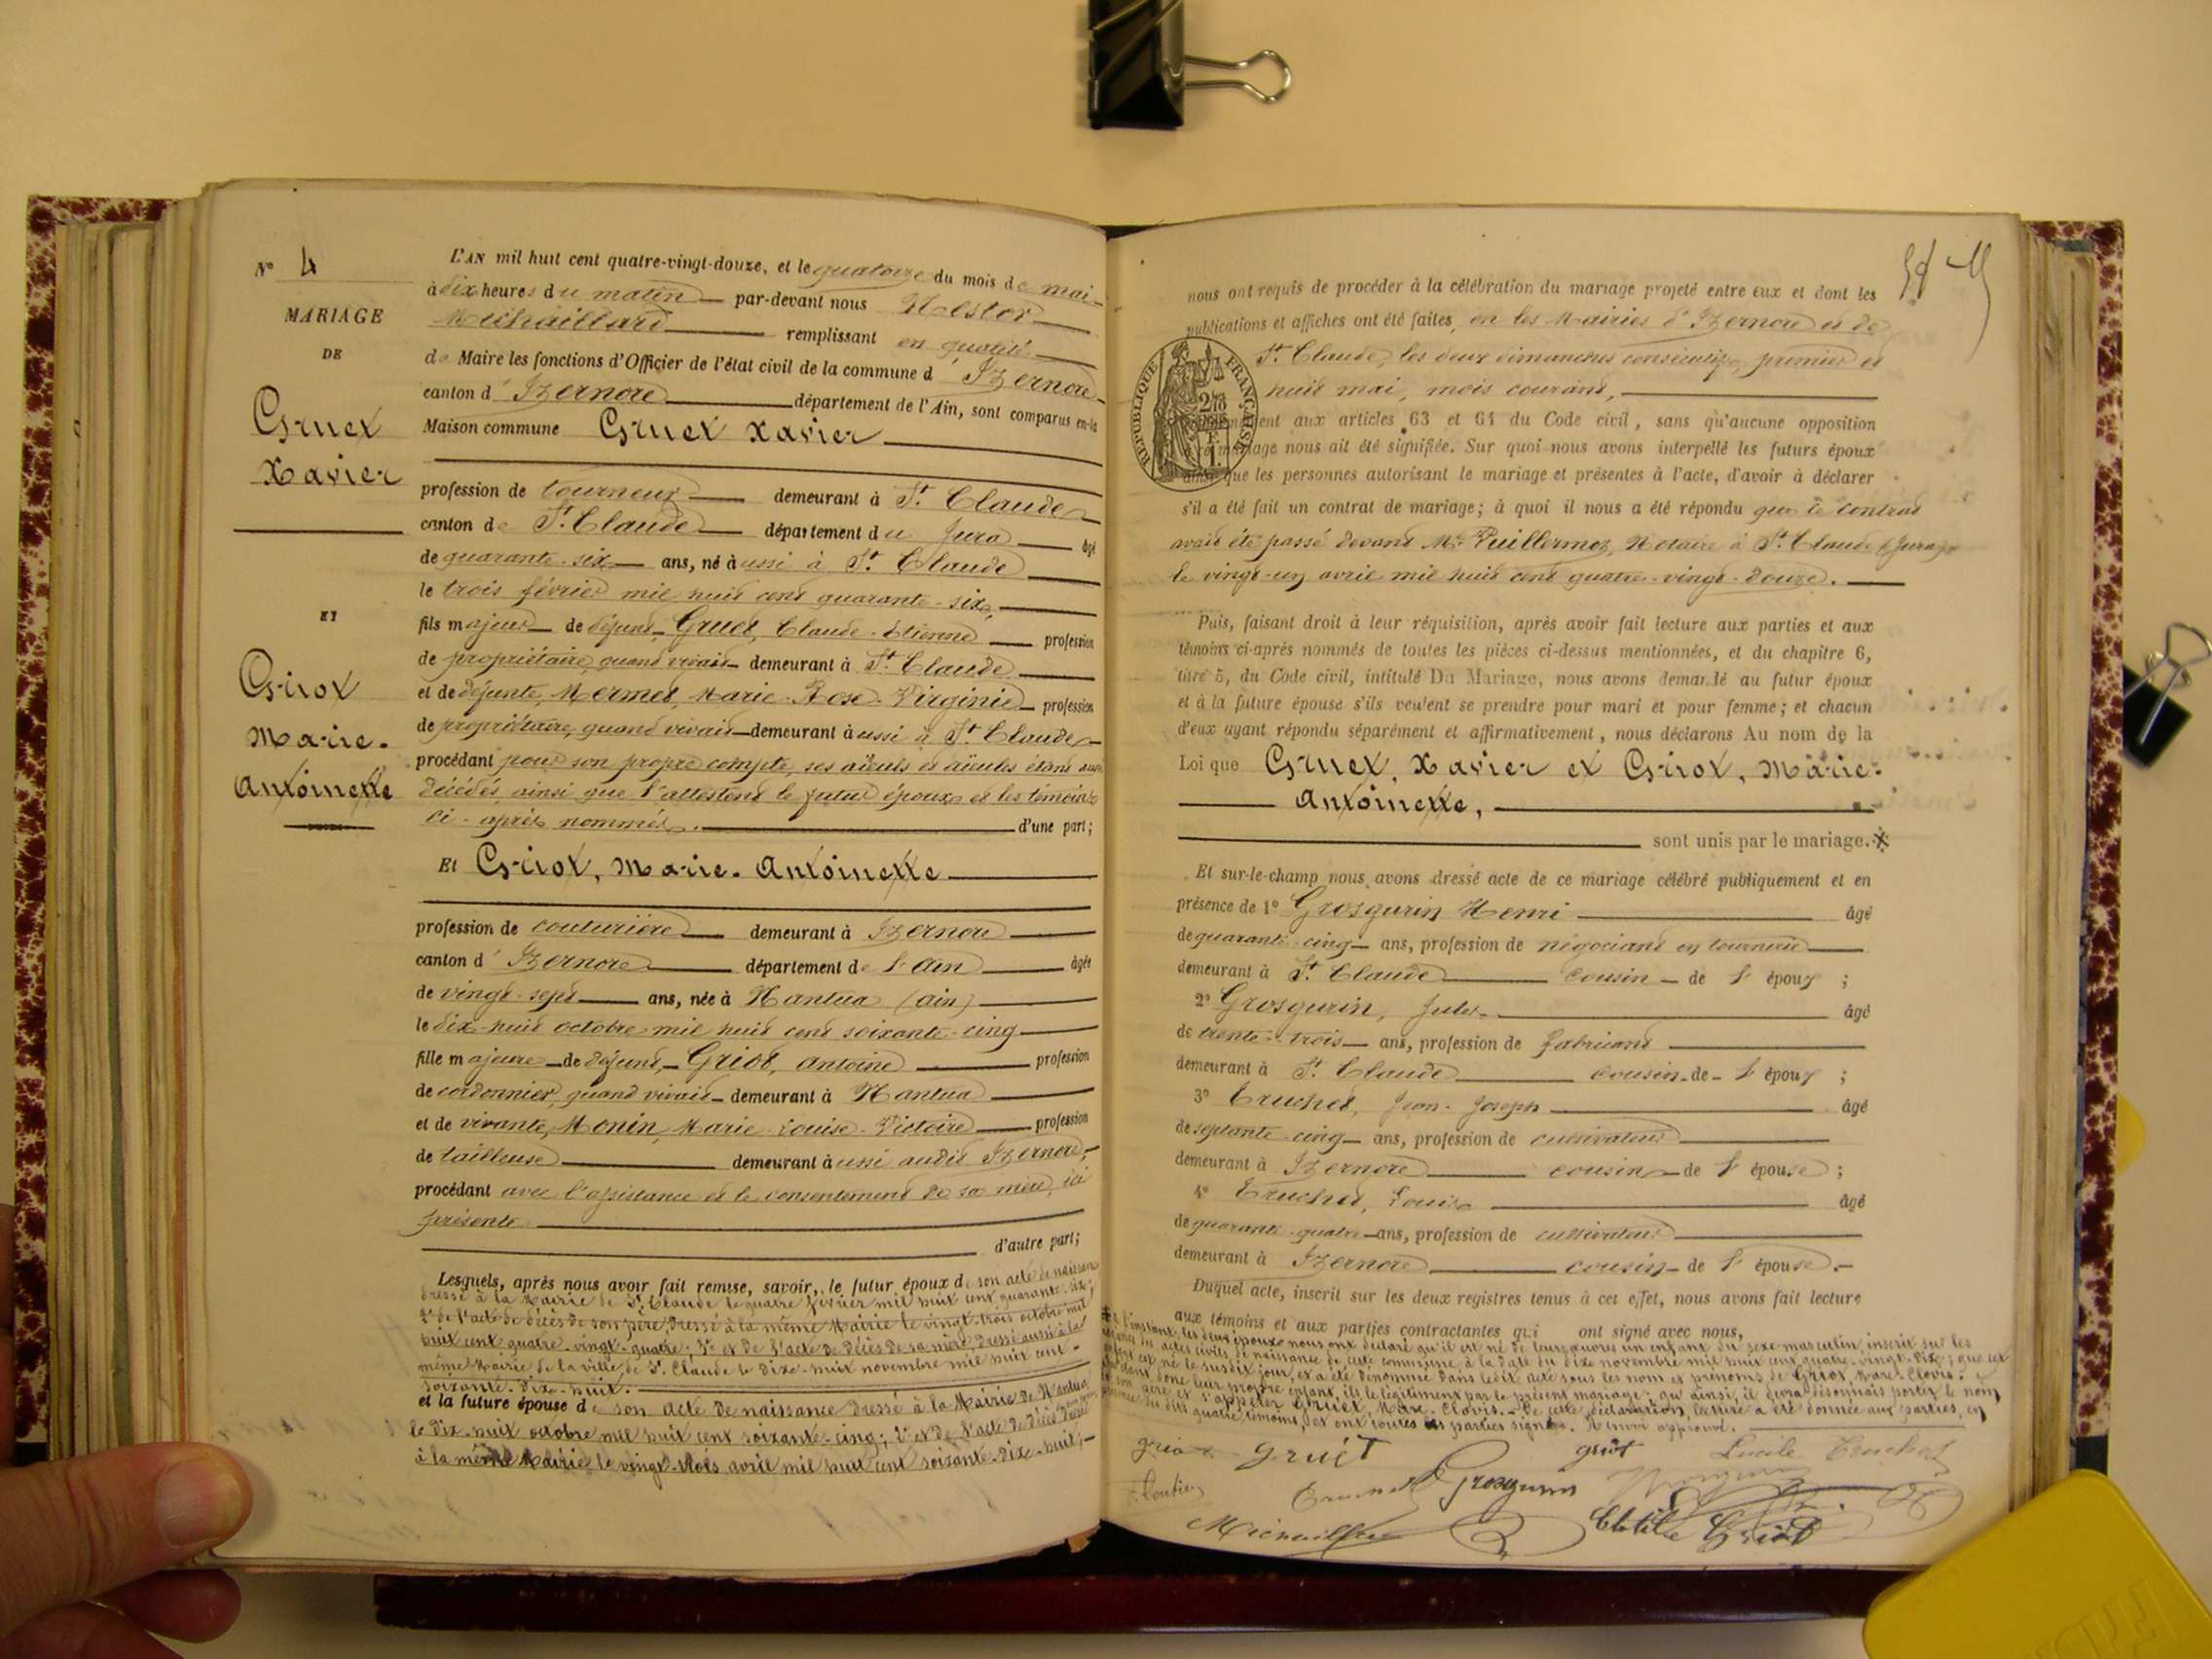 N° 4
MARIAGE
DE
Gruet
Xavier
ET
Griot
Marie-
Antoinette
L'AN mil huit cent quatre-vingt-douze, et le quatorze du mois de mai
à dix heures du matin par-devant nous Nestor
Michaillard remplissant en qualité
de Maire les fonctions d'Officier de l'état civil de la commune d'Izernore
canton d'Izernore département de l'Ain, sont comparus en la
Maison commune Gruet Xavier
profession de tourneur demeurant à St. Claude
canton de St. Claude département du Jura âgé
de quarante-six ans, né aussi à St. Claude
le trois février mil huit cent quarante-six,
fils majeur de défunt Gruet, Claude-Etienne profession
de propriétaire, quand vivait demeurant à St. Claude
et de défunte, Mermet, Marie-Rose-Virginie profession
de propriétaire, quand vivait demeurant aussi à St. Claude
procédant pour son propre compte, ses aïeuls et aïeules étant aussi
décédés, ainsi que l'attestent le futur époux et les témoins
ci-après nommés. d'une part;
Et Griot, Marie-Antoinette
profession de couturière demeurant à Izernore
canton d'Izernore département de l'Ain âgée
de vingt-sept ans, née à Nantua (Ain)
le dix-huit octobre mil huit cent soixante-cinq
fille majeure de défunt, Griot, Antoine profession
de cordonnier, quand vivait demeurant à Nantua
et de vivante, Monin, Marie-Louise-Victoire profession
de tailleuse demeurant aussi audit Izernore,
procédant avec l'assistance et le consentement de sa mère, ici
présente
d'autre part;
Lesquels, après nous avoir fait remise, savoir, le futur époux de son acte de naissance
dressé à la Mairie de St. Claude le quatre février mil huit cent quarante-six;
2° de l'acte de décès de son père, dressé à la même Mairie le vingt-trois octobre mil
huit cent quatre-vingt-quatre; 3° et de l'acte de décès de sa mère, dressé aussi à la
même Mairie de la ville de St. Claude le dix-huit novembre mil huit cent
soixante-dix-huit.
et la future épouse de son acte de naissance dressé à la Mairie de Nantua
le dix-huit octobre mil huit cent soixante-cinq; 2° et de l'acte de décès dressé
à la même Mairie le vingt-trois avril mil huit cent soixante-dix-huit,
nous ont requis de procéder à la célébration du mariage projeté entre eux et dont les
publications et affiches ont été faites, en les Mairies d'Izernore et de
St. Claude, les deux dimanches consécutifs, premier et
huit mai, mois courant,
RÉPUBLIQUE FRANÇAISE
aux articles 63 et 64 du Code civil, sans qu'aucune opposition
mariage nous ait été signifiée. Sur quoi nous avons interpellé les futurs époux
ainsi que les personnes autorisant le mariage et présentes à l'acte, d'avoir à déclarer
s'il a été fait un contrat de mariage; à quoi il nous a été répondu que le contrat
avait été passé devant Me Vuillermoz, Notaire à St. Claude (Jura)
le vingt-un avril mil huit cent quatre-vingt-douze.
Puis, faisant droit à leur réquisition, après avoir fait lecture aux parties et aux
témoins ci-après nommés de toutes les pièces ci-dessus mentionnées, et du chapitre 6,
titre 5, du Code civil, intitulé Du Mariage, nous avons demandé au futur époux
et à la future épouse s'ils veulent se prendre pour mari et pour femme; et chacun
d'eux ayant répondu séparément et affirmativement, nous déclarons Au nom de la
Loi que Gruet, Xavier et Griot, Marie-
Antoinette,
sont unis par le mariage.
Et sur-le-champ nous avons dressé acte de ce mariage célébré publiquement et en
présence de 1° Grosgurin Henri âgé
de quarante-cinq ans, profession de négociant en tournerie
demeurant à St. Claude cousin de l'époux ;
2° Grosgurin, Jules âgé
de trente-trois ans, profession de fabricant
demeurant à St. Claude cousin de l'époux ;
3° Truchet, Jean-Joseph âgé
de septante-cinq ans, profession de cultivateur
demeurant à Izernore cousin de l'épouse ;
4° Truchet, Louis âgé
de quarante-quatre ans, profession de cultivateur
demeurant à Izernore cousin de l'épouse.
Duquel acte, inscrit sur les deux registres tenus à cet effet, nous avons fait lecture
aux témoins et aux parties contractantes qui ont signé avec nous,
à l'instant, les deux époux nous ont déclaré qu'il est né de leurs œuvres un enfant du sexe masculin, inscrit sur les
actes civils de naissance de cette commune, à la date du dix novembre mil huit cent quatre-vingt-dix; que cet
est né le susdit jour, et a été dénommé dans ledit acte sous les nom et prénoms de Griot, Marc-Clovis.
donc leur propre enfant, ils le légitiment par le présent mariage; qu'ainsi, il devra désormais porter le nom
son père et s'appeler Gruet, Marc-Clovis. De cette déclaration, lecture a été donnée aux parties, en
présence des dits quatre témoins, et ont toutes les parties signé.
griot gruet griot Lucile Truchet
Grosgurin
Clotilde Griot